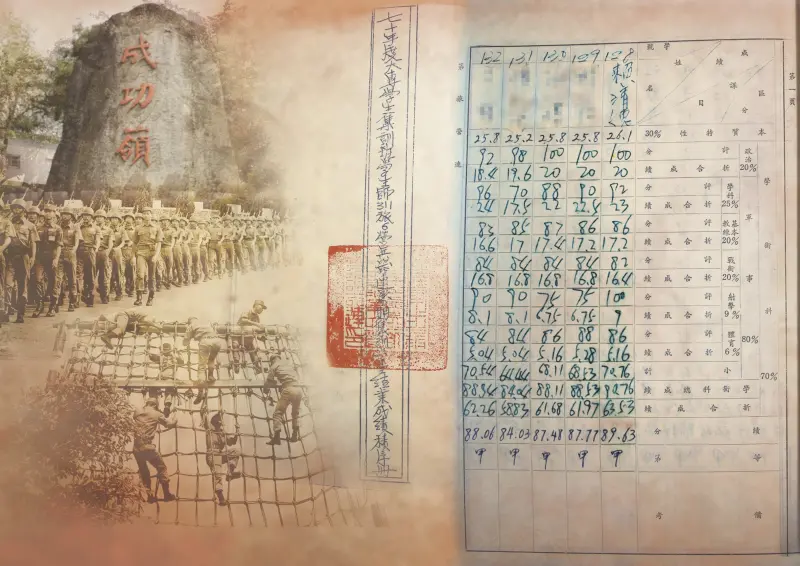 成功嶺
七十年度大專學生集訓班學生師311旅
第一頁
區分
成績詳目
學號
姓名
128 129 130 131 132
賴清德
本質特性 30% 26.1 25.8 25.8 25.2 25.8
學術科 70%
軍事 80%
政治 20%
評分 100 100 100 98 92
折合成績 20 20 20 19.6 18.4
學科 25%
評分 92 90 88 70 96
折合成績 23 22.5 22 17.5 24
基本教練 20%
評分 86 86 87 85 83
折合成績 17.2 17.2 17.4 17 16.6
戰術 20%
評分 82 84 84 84 84
折合成績 16.4 16.8 16.8 16.8 16.8
射擊 9%
評分 100 75 75 90 90
折合成績 9 6.75 6.75 8.1 8.1
體育 6%
評分 86 88 86 84 84
折合成績 5.16 5.28 5.16 5.04 5.04
小計 70.76 68.53 68.11 64.44 70.54
學術科總成績 90.76 88.53 88.11 84.04 88.94
折合成績 63.53 61.97 61.68 58.83 62.26
績分 89.63 87.77 87.48 84.03 88.06
等第 甲 甲 甲 甲 甲
備考